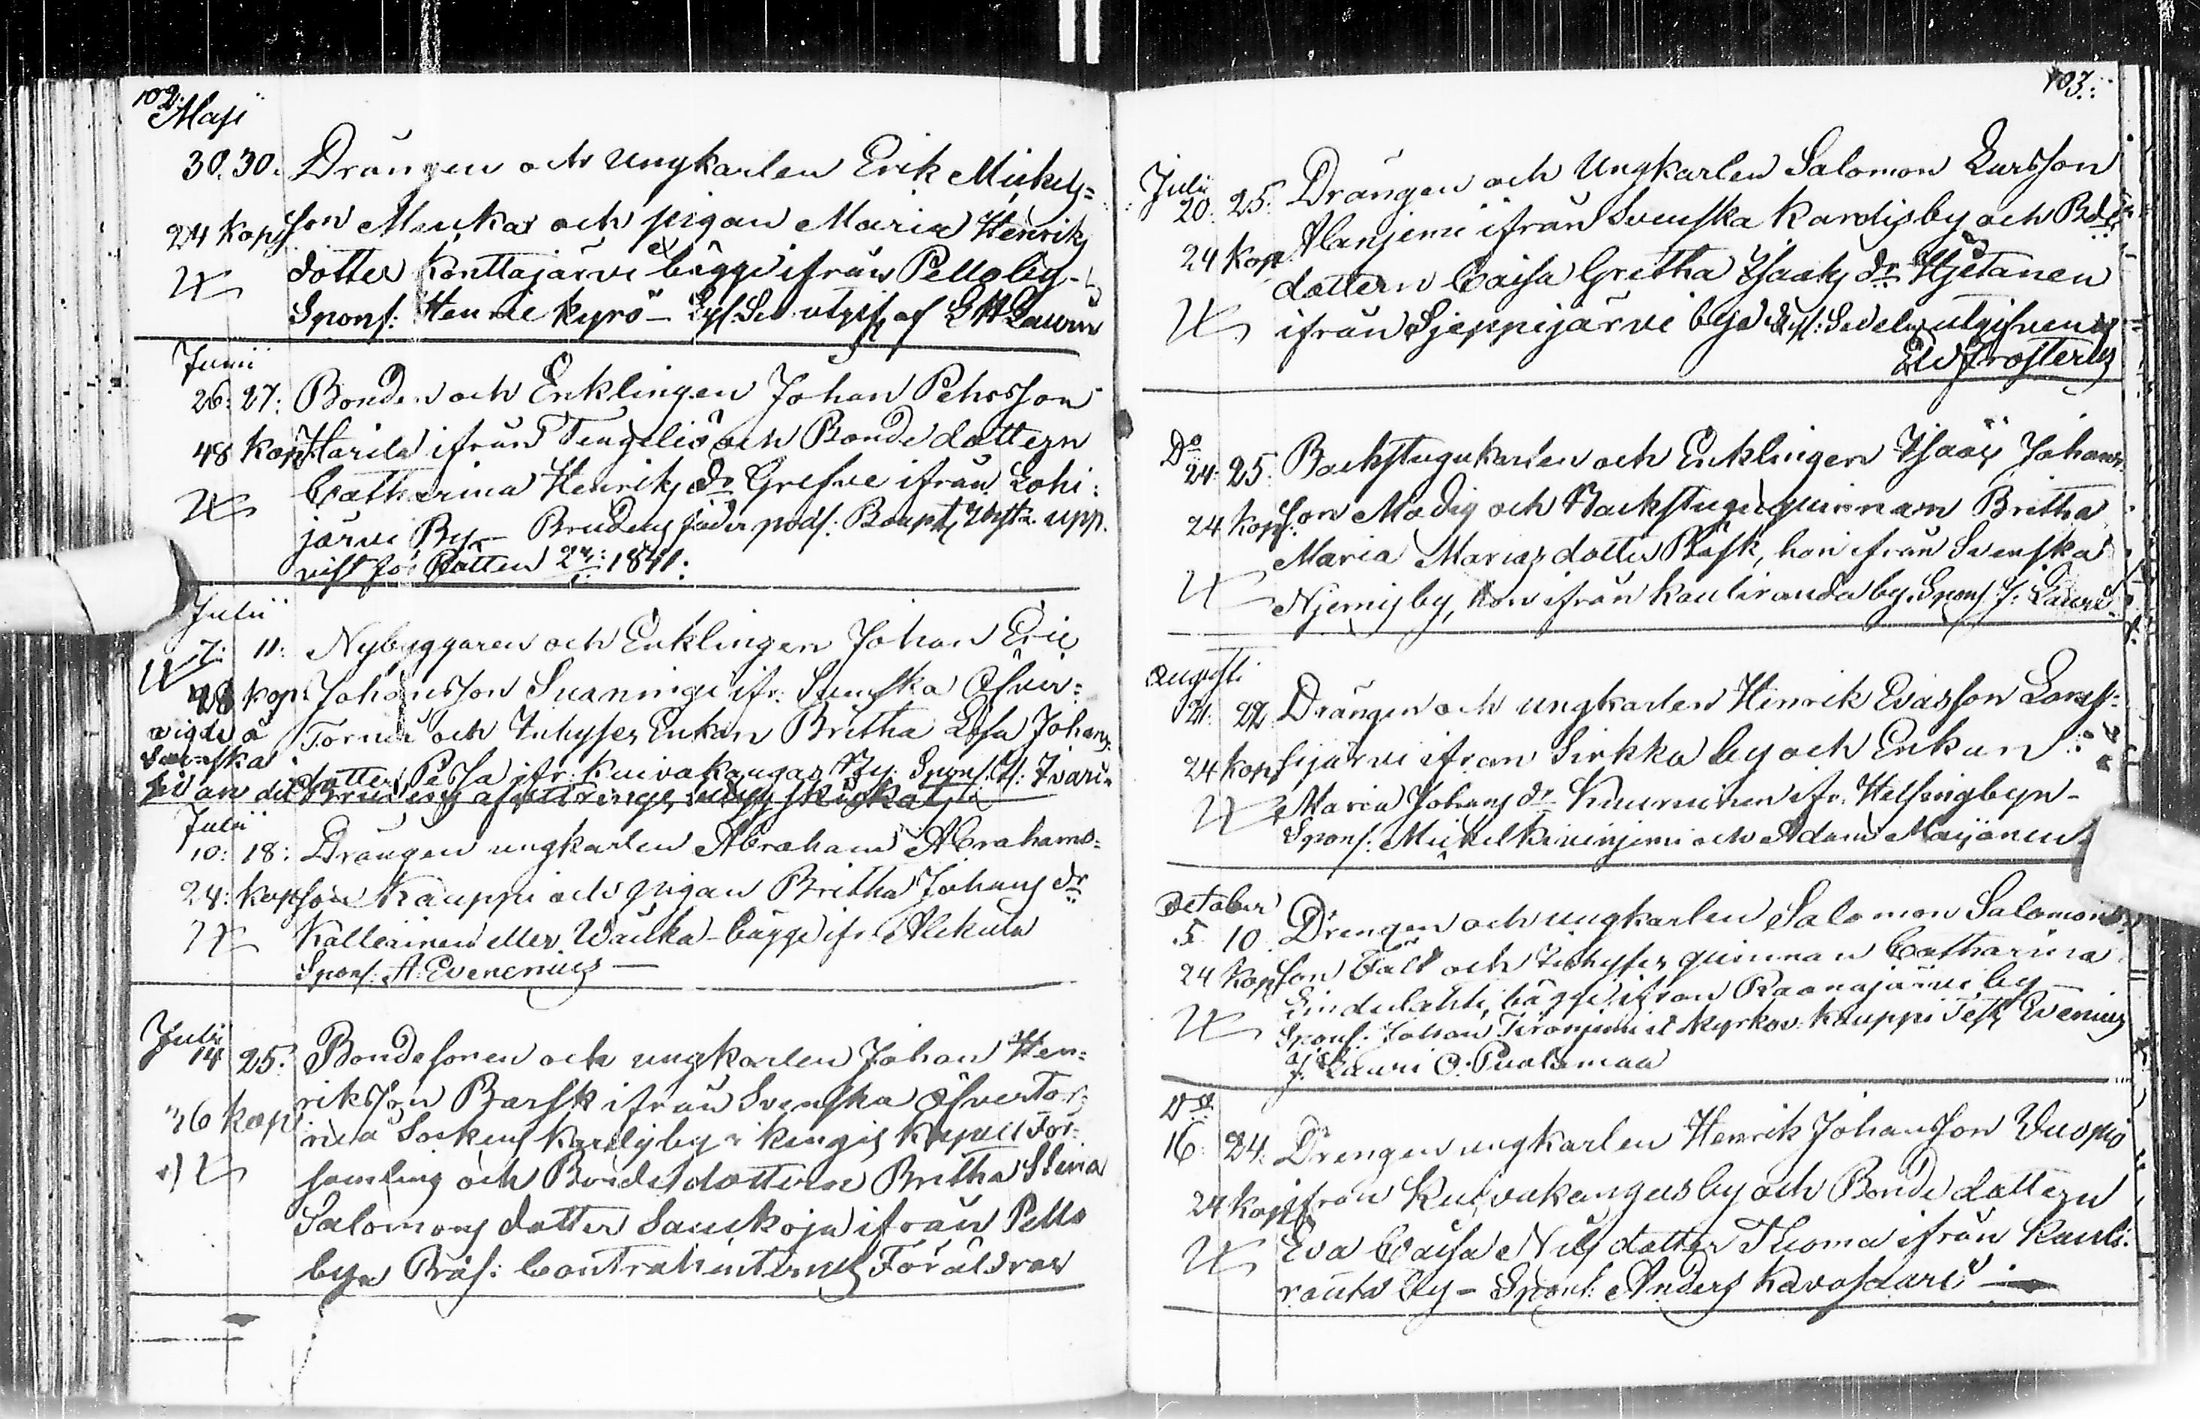 102.
Maji
30. 30. Drängen och Ungkarlen Erik Mickels=
24 kop son Muukas och pigan Maria Henriks
dotter Konttajärvi bägge ifrån Pello by -
Spons: Henric Kyrö - Lys. Sed. utgifv. af L H Laurin
Junii
26: 27: Bonden och Enklingen Johan Pehrsson
48 kop Harila ifrån Tengeliö och Bonde dottern
Catharina Henriks dr Grefve ifrån Lohi:
järvi By - Brudens fader pods: Boupt. upp.
vist för Rätten 1841:
Julii
7: 11: Nybyggaren och Enklingen Johan Eric
48 kop Johansson Suaninge ifr. Svenska Öfver:
vigde å Torneå och Inhyses Enkan Britha Lisa Johans
Svenska dotter Pessa ifr. Kuivakangas By. Spons.
sidan
Julii
10: 18: Drängen ungkarlen Abraham Abrahams=
24: kop son Kauppi och pigan Britha Johans dr
Kallainen eller Waulka - bägge ifr. Alekula
Spons: A: Evenenius -
Julii
14 25: Bondesonen och ungkarlen Johan Hen:
36 kop riksson Barsk ifrån Svenska Öfver Tor:
neå Sockens by i Kengis Kapell För:
samling och Bondedottern Britha Stina
Salomons dotter Saukoja ifrån Pello
by Präs: Contrahenternes Föräldrar
103.
Julii
20. 25. Drängen och Ungkarlen Salomon Larsson
24 kop Alanjemi ifrån Svenska Kardis by och Bde
dottern Caisa Gretha Isaks dr Hjetanen
ifrån Sjeppijärvi by Lys: Sedeln utgifven af
Do
24. 25. Backstugukarlen och Enklingen Isaac Johans
24 kop: son Madig och Backstuguquinnan Britha
Maria Marias dotter Plask, han ifrån Svenska
Njemis by, hon ifrån Kauliranda by. Spons J: Lauri
Augusti
21. 22. Drängen och ungkarlen Henrik Eliasson Lomp:
24 kop sijärvi ifrån Sirkka by och Enkan
Maria Johans dr Kinnunen ifr. Helsingbyn -
Spons: Mickel Kivinjemi och Adam Maijanen
October
5 10. Drengen och ungkarlen Salomon Salomons
24 kop son Fält och Inhyses quinnan Catharina
Lindelahti, bägge ifrån Raanajärvi by
Spons: Johan Tiranjemi Kyrkov. Kauppi Test. Evenius
J. Lauri O. Puolamaa
Do
16. 24. Drengen ungkarlen Henrik Johansson Vuopio
24 kop ifrån Kuivakangas by och Bonde dottern
Eva Caisa Nils dotter Thoma ifrån Kauli:
ranta by - Spons: Anders Kavosaari -